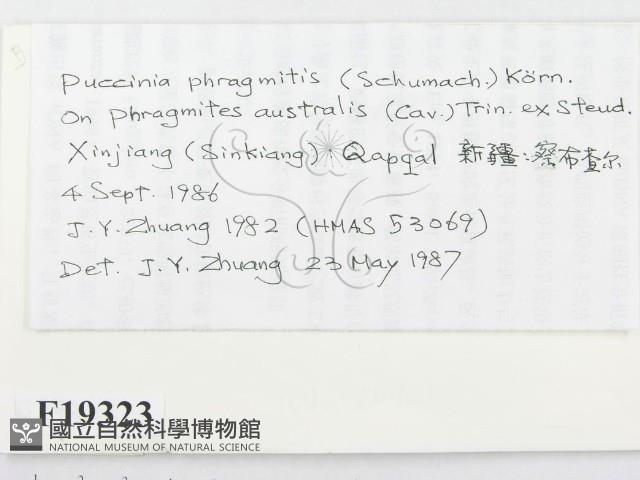 Puccinia phragmitis (Schumach.) Körn.
On Phragmites australis (Cav.) Trin. ex Steud.
Xinjiang (Sinkiang) Qapqal 新疆:察布查尔
4 Sept. 1986
J.Y. Zhuang 1982 (HMAS 53069)
Det. J.Y. Zhuang 23 May 1987
F19323
國立自然科學博物館
NATIONAL MUSEUM OF NATURAL SCIENCE